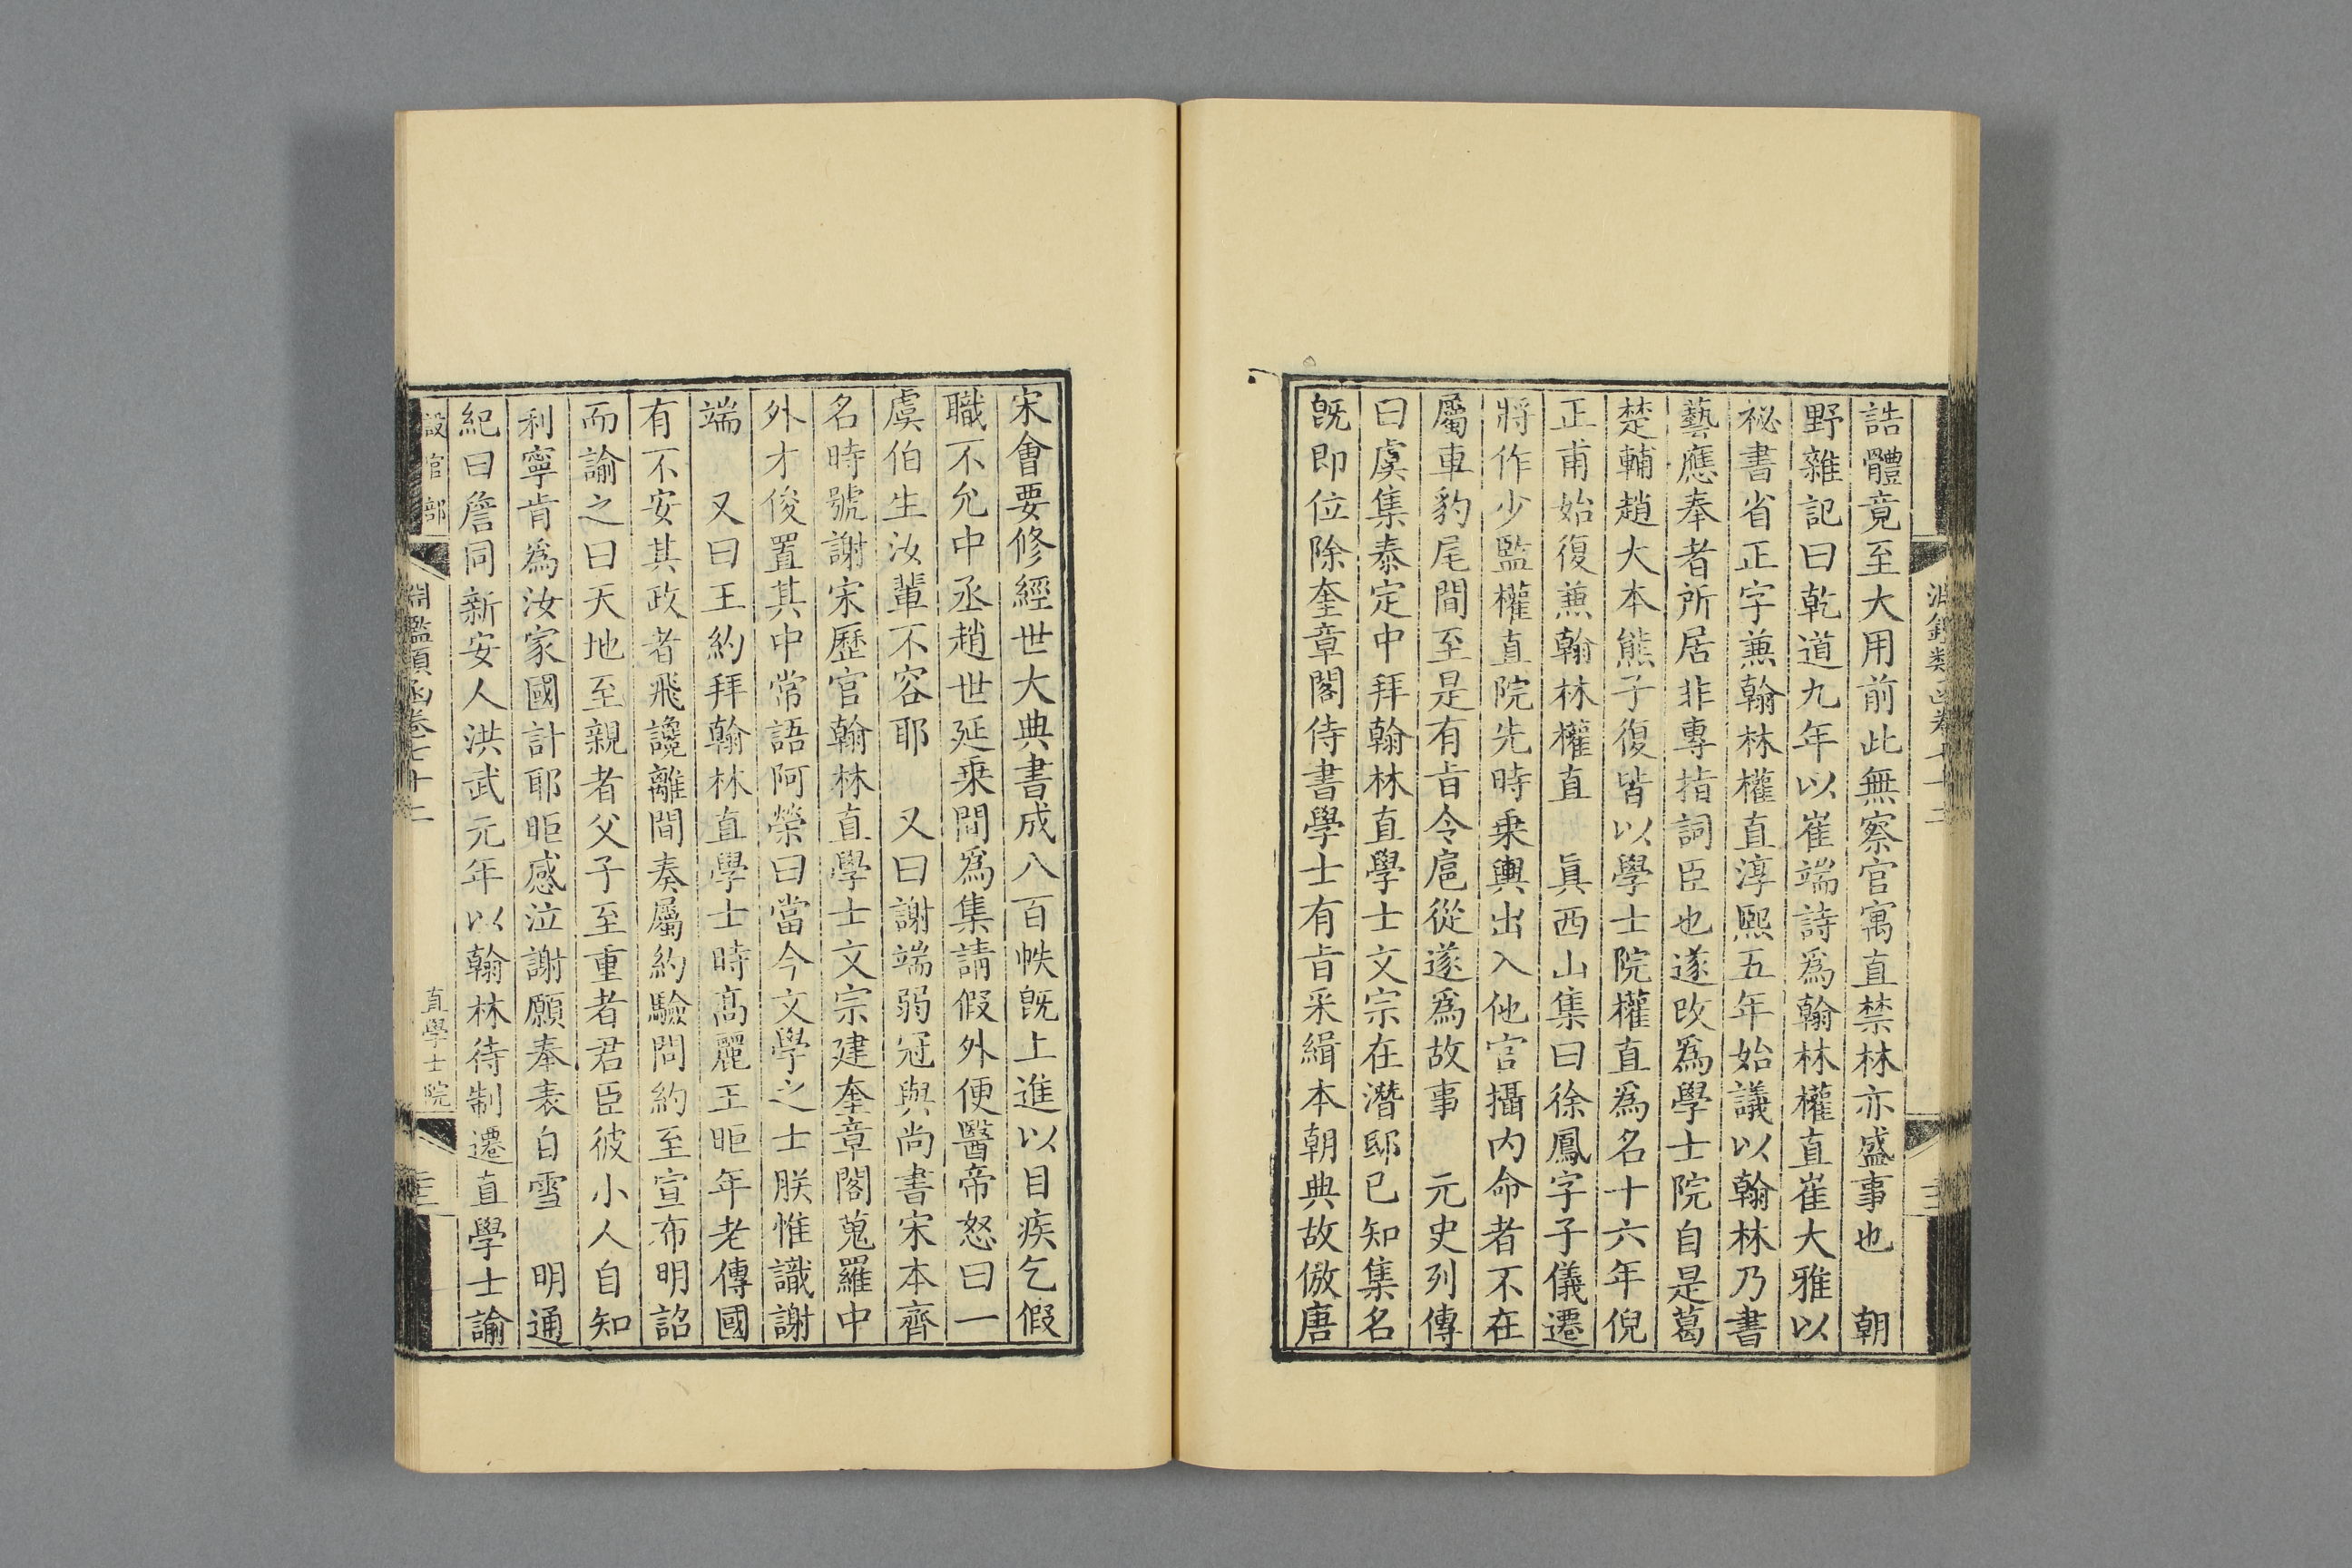 誥體竟至大用前此無察官寓直禁林亦盛事也　朝
野雜記曰乾道九年以崔端詩爲翰林權直崔大雅以
祕書省正字兼翰林權直淳熙五年始議以翰林乃書
藝應奉者所居非專指詞臣也遂改爲學士院自是葛
楚輔趙大本熊子復皆以學士院權直爲名十六年倪
正甫始復兼翰林權直　眞西山集曰徐鳳字子儀遷
將作少監權直院先時乘輿出入他官攝內命者不在
屬車豹尾間至是有旨令扈從遂爲故事　元史列傳
曰虞集泰定中拜翰林直學士文宗在潛邸已知集名
旣即位除奎章閣侍書學士有旨采緝本朝典故倣唐
宋會要修經世大典書成八百帙旣上進以目疾乞假
職不允中丞趙世延乘間爲集請假外便醫帝怒曰一
虞伯生汝輩不容耶　又曰謝端弱冠與尚書宋本齊
名時號謝宋歷官翰林直學士文宗建奎章閣蒐羅中
外才俊置其中常語阿榮曰當今文學之士朕惟識謝
端　又曰王約拜翰林直學士時高麗王昛年老傳國
有不安其政者飛讒離間奏屬約驗問約至宣布明詔
而諭之曰天地至親者父子至重者君臣彼小人自知
利寧肯爲汝家國計耶昛感泣謝願奉表自雪　明通
紀曰詹同新安人洪武元年以翰林待制遷直學士諭
設官部
淵鑑類函卷七十二
直學士院